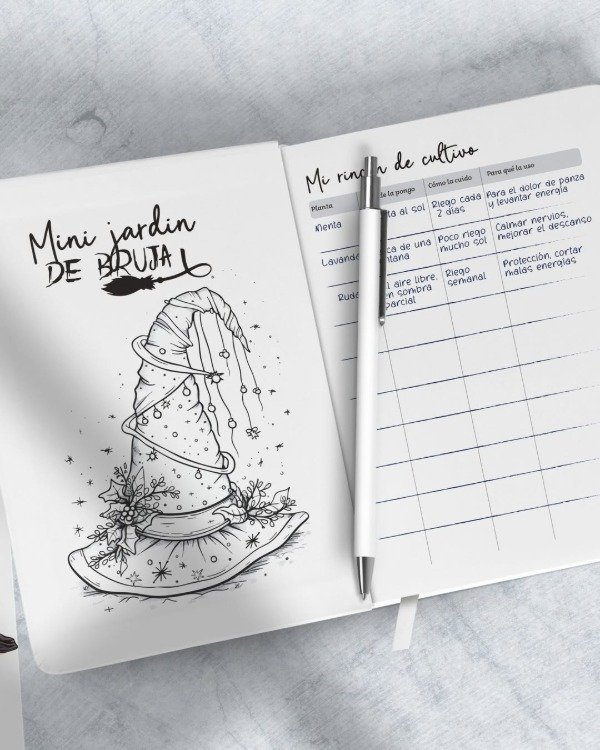 Mini jardin
DE BRUJA
Mi rincón de cultivo
Planta
de la pongo
Cómo la cuido
Para qué la uso
Menta
al sol
Riego cada
2 días
Para el dolor de panza
y levantar energía
Lavanda
de una
Poco riego
mucho sol
Calmar nervios,
mejorar el descanso
Ruda
aire libre,
en sombra
parcial
Riego
semanal
Protección, cortar
malas energías